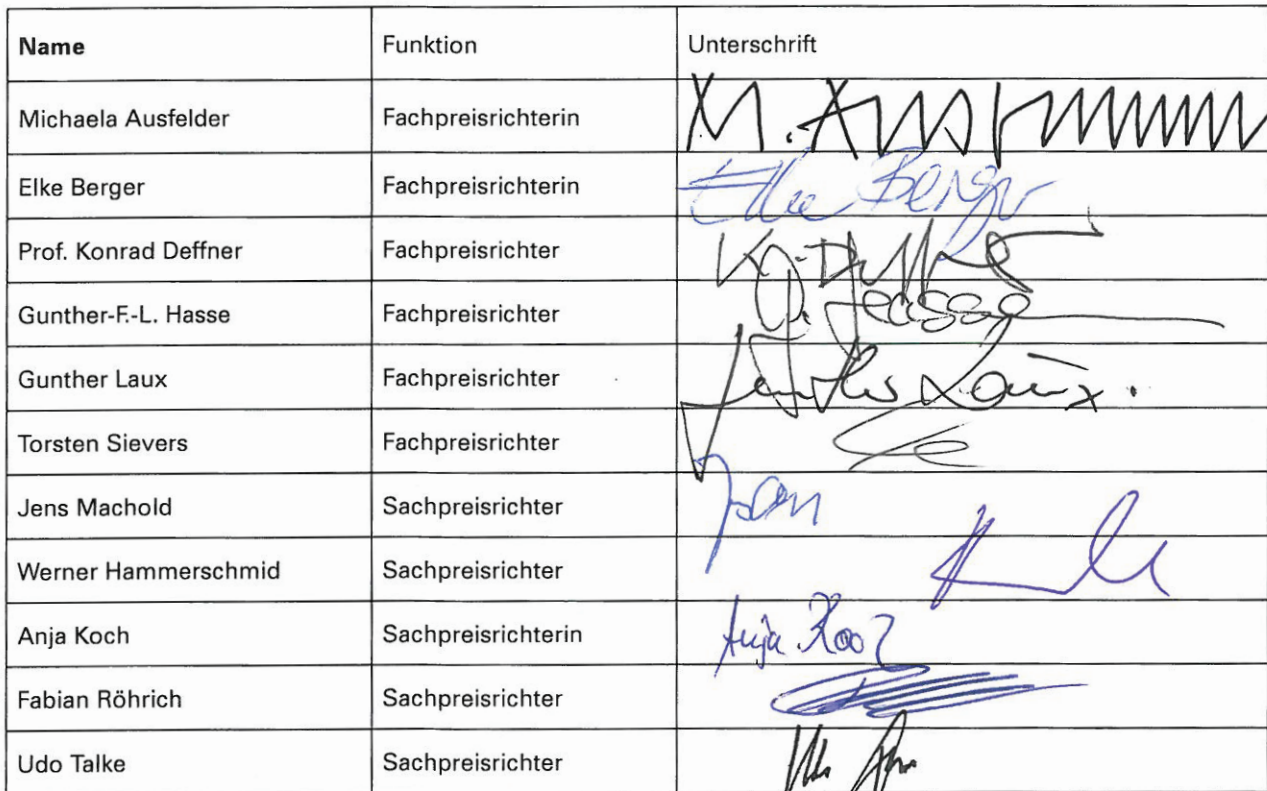 Name Funktion Unterschrift
Michaela Ausfelder Fachpreisrichterin
Elke Berger Fachpreisrichterin Elke Berger
Prof. Konrad Deffner Fachpreisrichter
Gunther-F.-L. Hasse Fachpreisrichter G. Hasse
Gunther Laux Fachpreisrichter Gunther Laux.
Torsten Sievers Fachpreisrichter
Jens Machold Sachpreisrichter
Werner Hammerschmid Sachpreisrichter
Anja Koch Sachpreisrichterin Anja Koch
Fabian Röhrich Sachpreisrichter
Udo Talke Sachpreisrichter